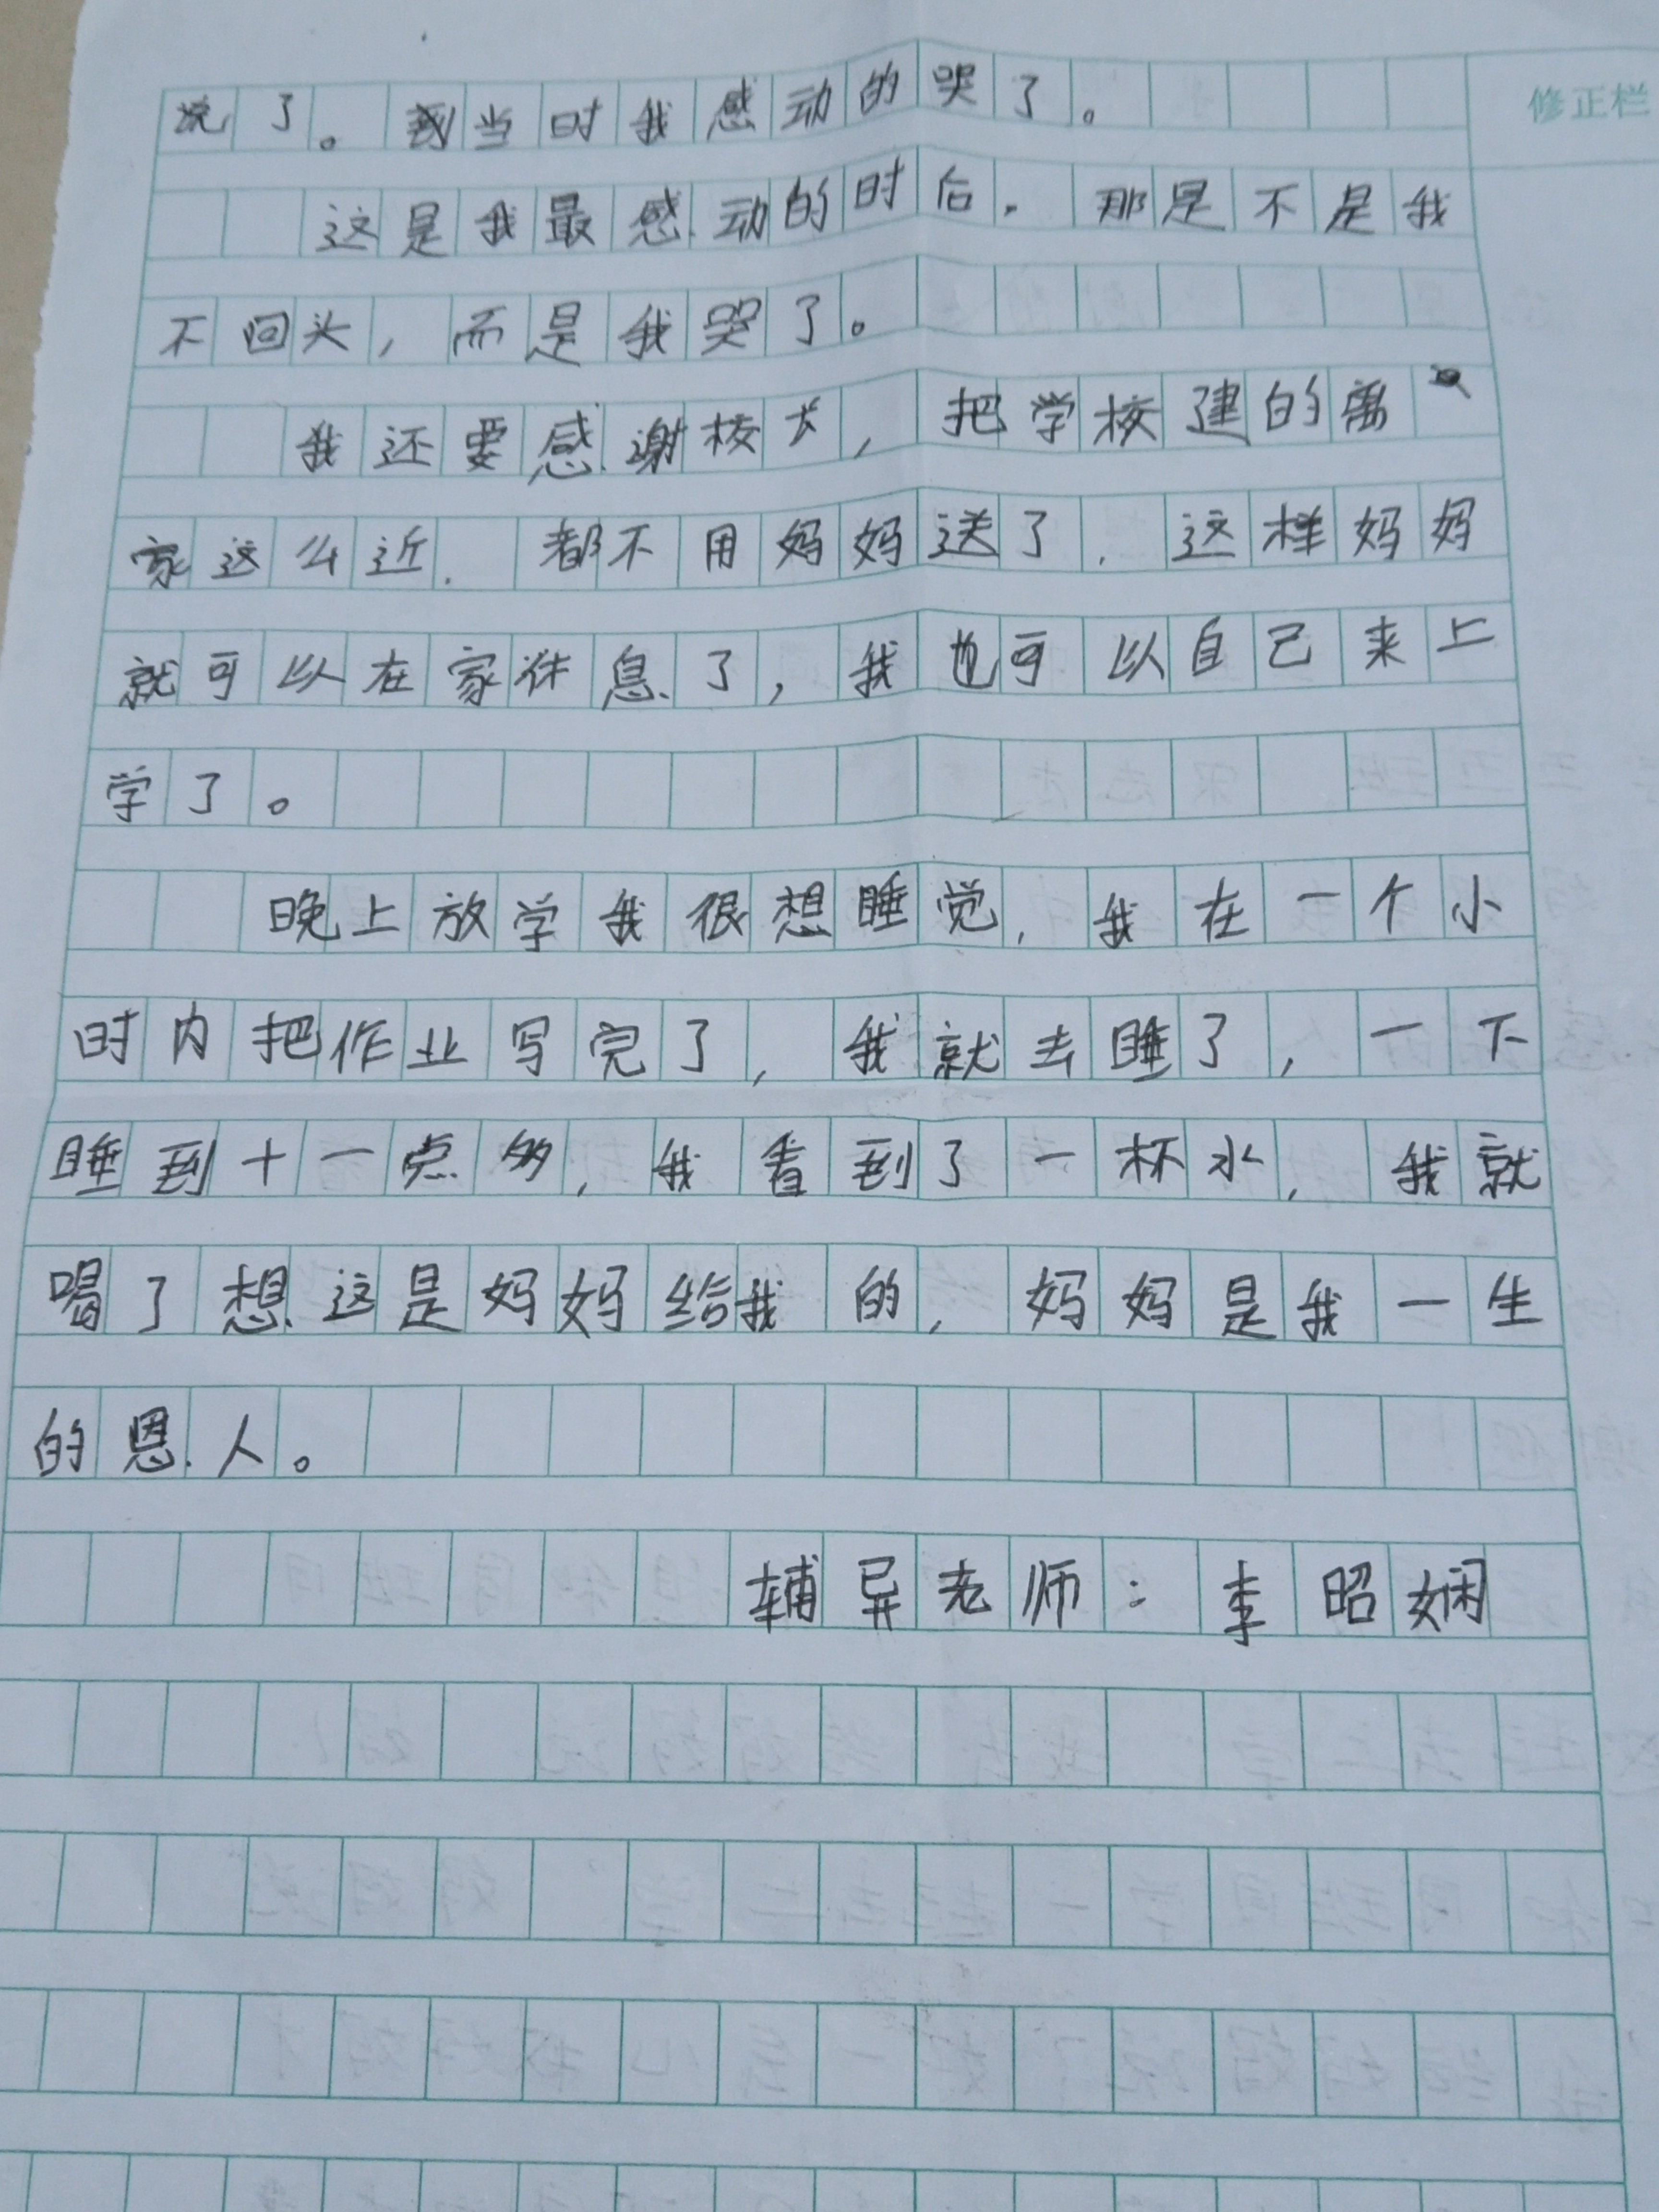 洗了。到当时我感动的哭了。
修正栏
这是我最感动的时后，那是不是我
不回头，而是我哭了。
我还要感谢校长，把学校建的离
家这么近．都不用妈妈送了，这样妈妈
就可以在家休息了，我也可以自己来上
学了。
晚上放学我很想睡觉，我在一个小
时内把作业写完了，我就去睡了，一下
睡到十一点多，我看到了一杯水，我就
喝了想这是妈妈给我的，妈妈是我一生
的恩人。
辅异老师：李昭娴